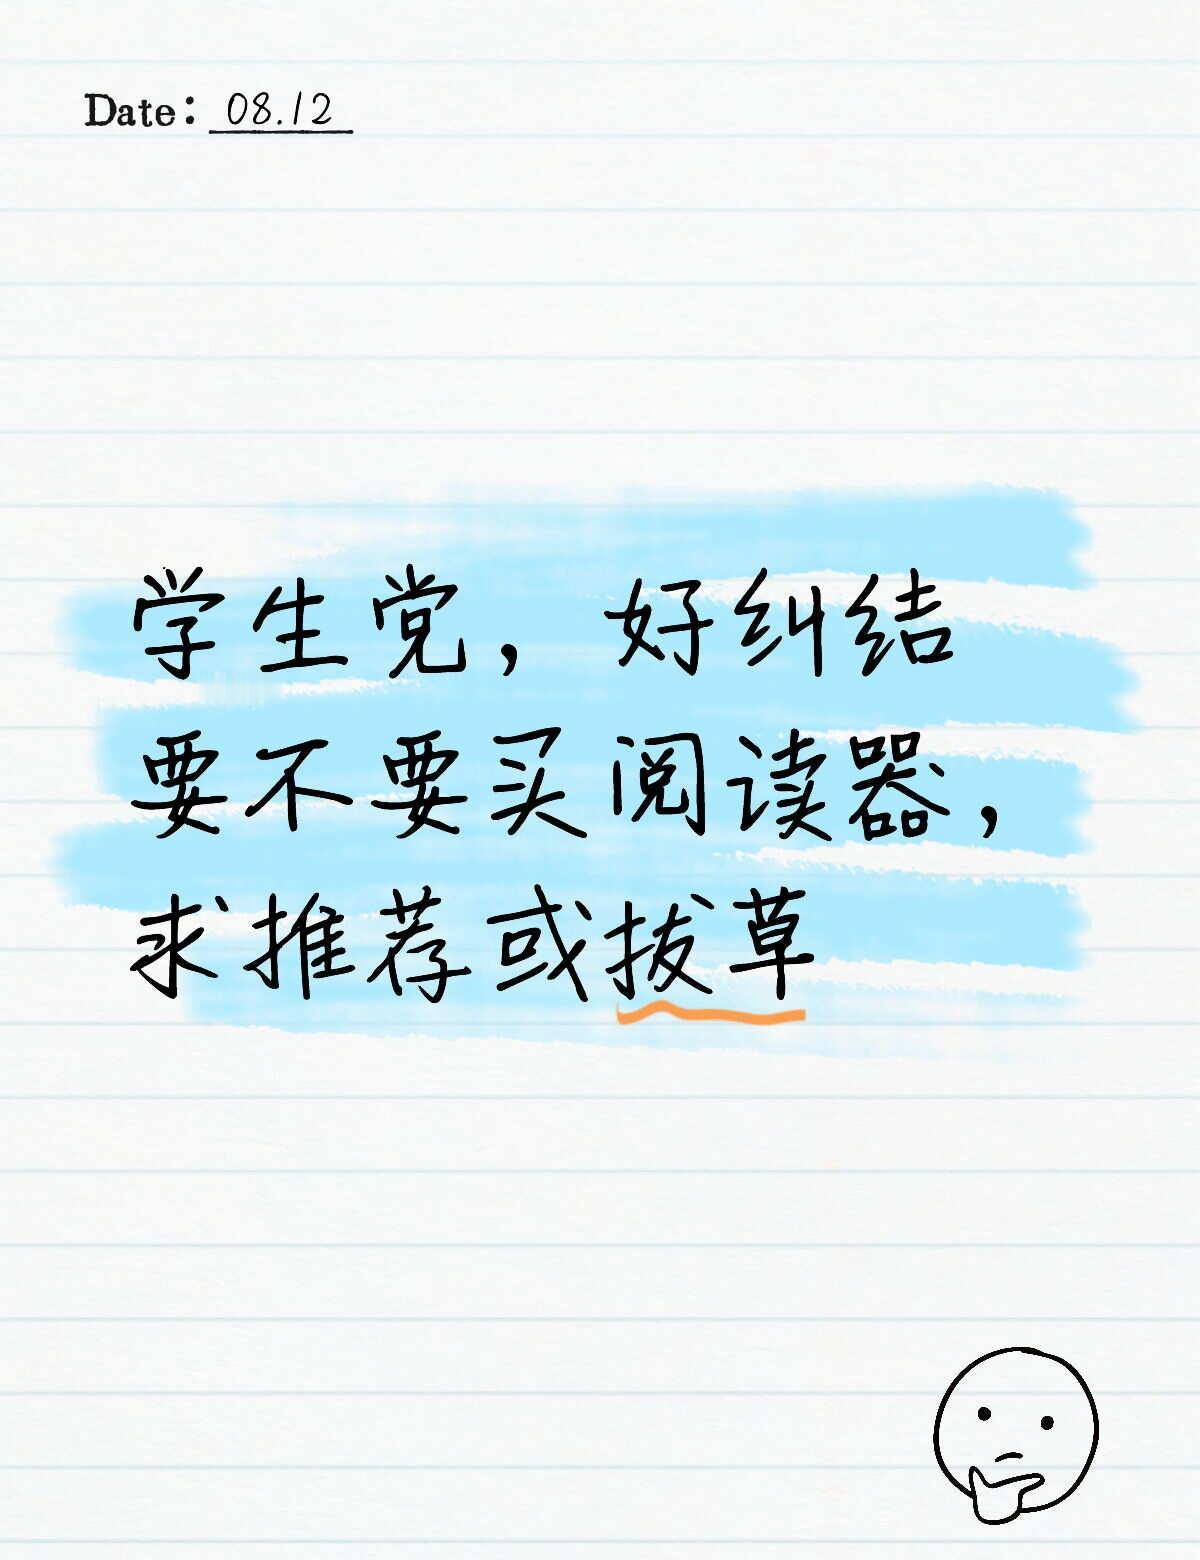 Date: 08.12
学生党，好纠结
要不要买阅读器，
求推荐或拔草